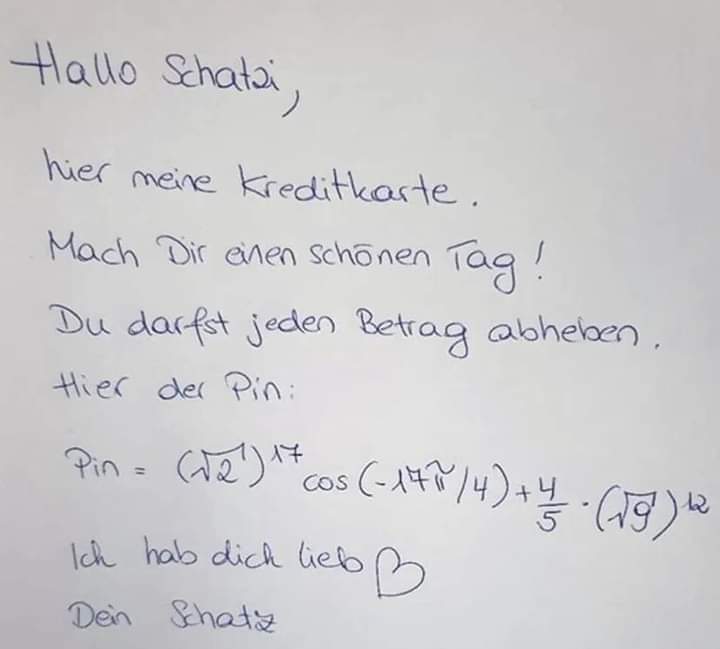 Hallo Schatzi,
hier meine Kreditkarte.
Mach Dir einen schönen Tag!
Du darfst jeden Betrag abheben.
Hier der Pin:
Pin = (√2)¹⁷ cos(-17π/4) + 4/5 · (√9)¹²
Ich hab dich lieb ♡
Dein Schatz